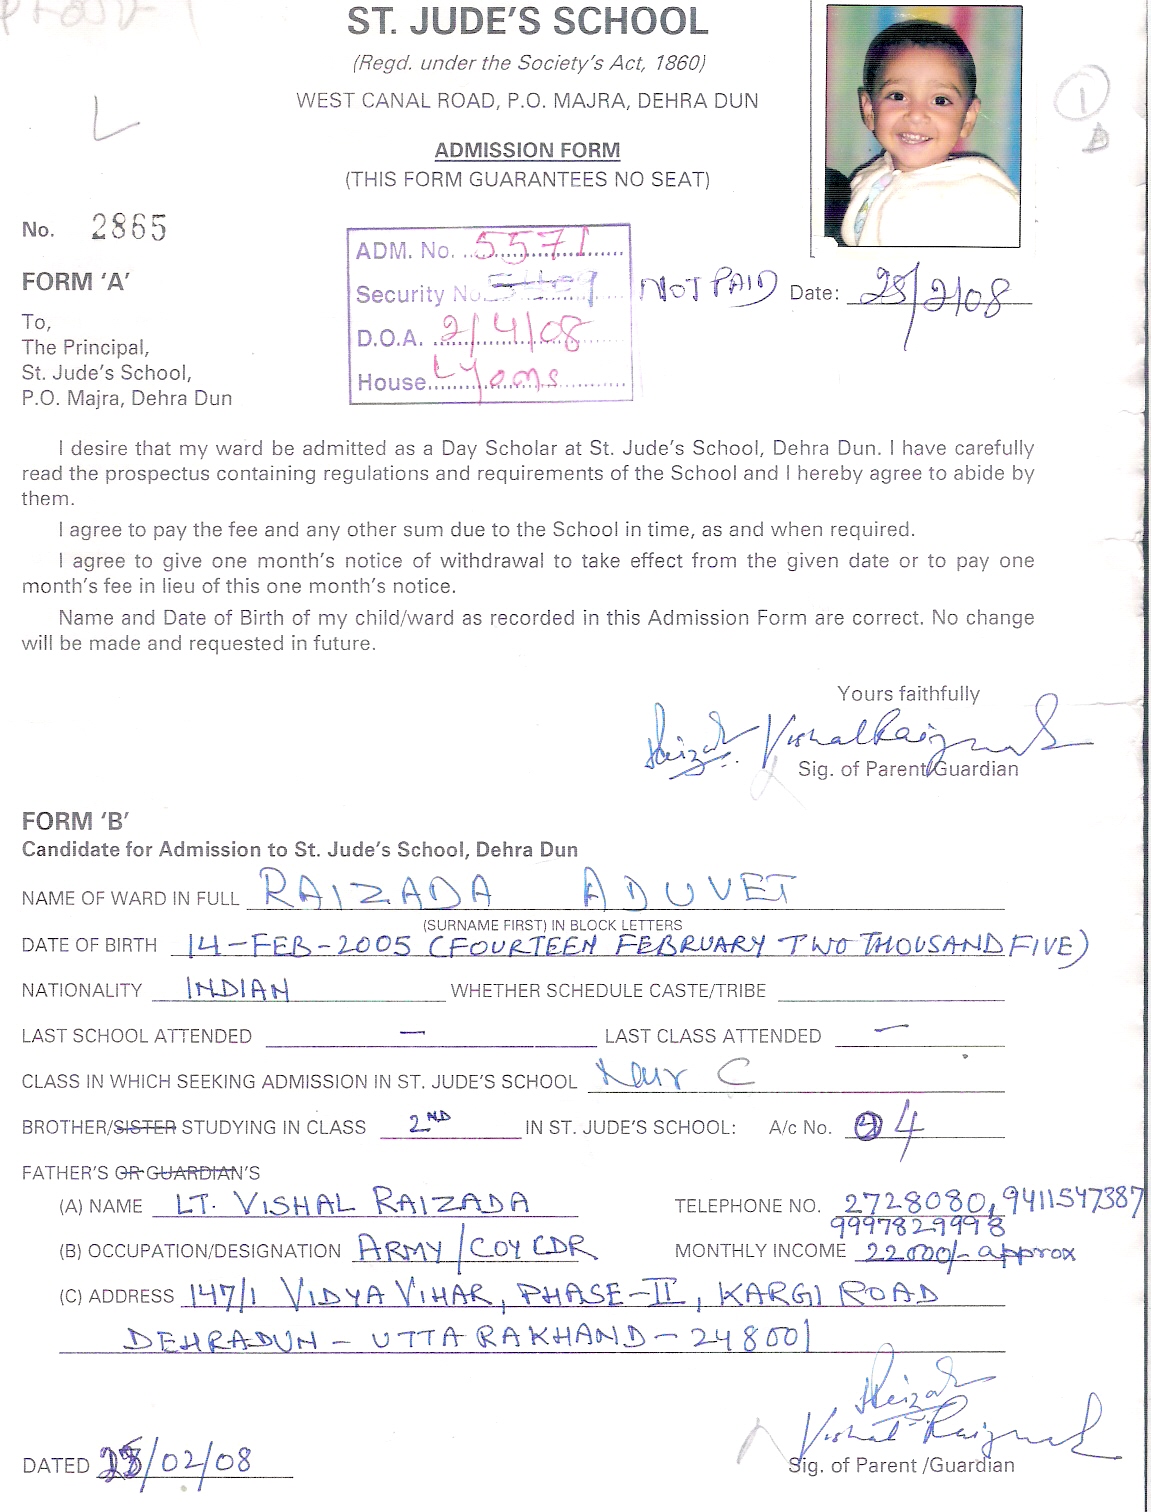 ST. JUDE'S SCHOOL
(Regd. under the Society's Act, 1860)
WEST CANAL ROAD, P.O. MAJRA, DEHRA DUN
L
1
D
ADMISSION FORM
(THIS FORM GUARANTEES NO SEAT)
No. 2865
ADM. No. 5571
FORM 'A'
Security No. NOT PAID Date: 28/2/08
To,
D.O.A. 2/4/08
The Principal,
St. Jude's School,
House Lyons
P.O. Majra, Dehra Dun
I desire that my ward be admitted as a Day Scholar at St. Jude's School, Dehra Dun. I have carefully
read the prospectus containing regulations and requirements of the School and I hereby agree to abide by
them.
I agree to pay the fee and any other sum due to the School in time, as and when required.
I agree to give one month's notice of withdrawal to take effect from the given date or to pay one
month's fee in lieu of this one month's notice.
Name and Date of Birth of my child/ward as recorded in this Admission Form are correct. No change
will be made and requested in future.
Yours faithfully
Raizada Vishal Raizada
Sig. of Parent/Guardian
FORM 'B'
Candidate for Admission to St. Jude's School, Dehra Dun
NAME OF WARD IN FULL RAIZADA ADUVET
(SURNAME FIRST) IN BLOCK LETTERS
DATE OF BIRTH 14-FEB-2005 (FOURTEEN FEBRUARY TWO THOUSAND FIVE)
NATIONALITY INDIAN WHETHER SCHEDULE CASTE/TRIBE
LAST SCHOOL ATTENDED — LAST CLASS ATTENDED —
CLASS IN WHICH SEEKING ADMISSION IN ST. JUDE'S SCHOOL Nur C
BROTHER/SISTER STUDYING IN CLASS 2ND IN ST. JUDE'S SCHOOL: A/c No. 4
FATHER'S OR GUARDIAN'S
(A) NAME LT. VISHAL RAIZADA TELEPHONE NO. 2728080, 9411547387
9997829998
(B) OCCUPATION/DESIGNATION ARMY/COY CDR MONTHLY INCOME 22000/- approx
(C) ADDRESS 147/1 VIDYA VIHAR, PHASE-II, KARGI ROAD
DEHRADUN - UTTARAKHAND - 248001
Raizada
Vishal Raizada
DATED /02/08 Sig. of Parent /Guardian